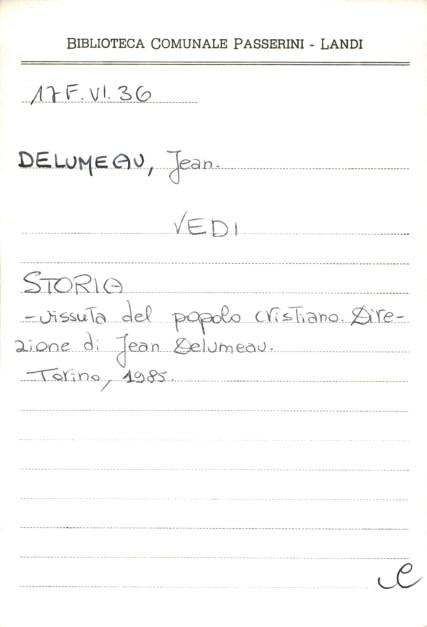 BIBLIOTECA COMUNALE PASSERINI - LANDI
17F.VI.36
DELUMEAU, Jean.
VEDI
STORIA
-vissuta del popolo cristiano. Dire-
zione di Jean Delumeau.
Torino, 1985.